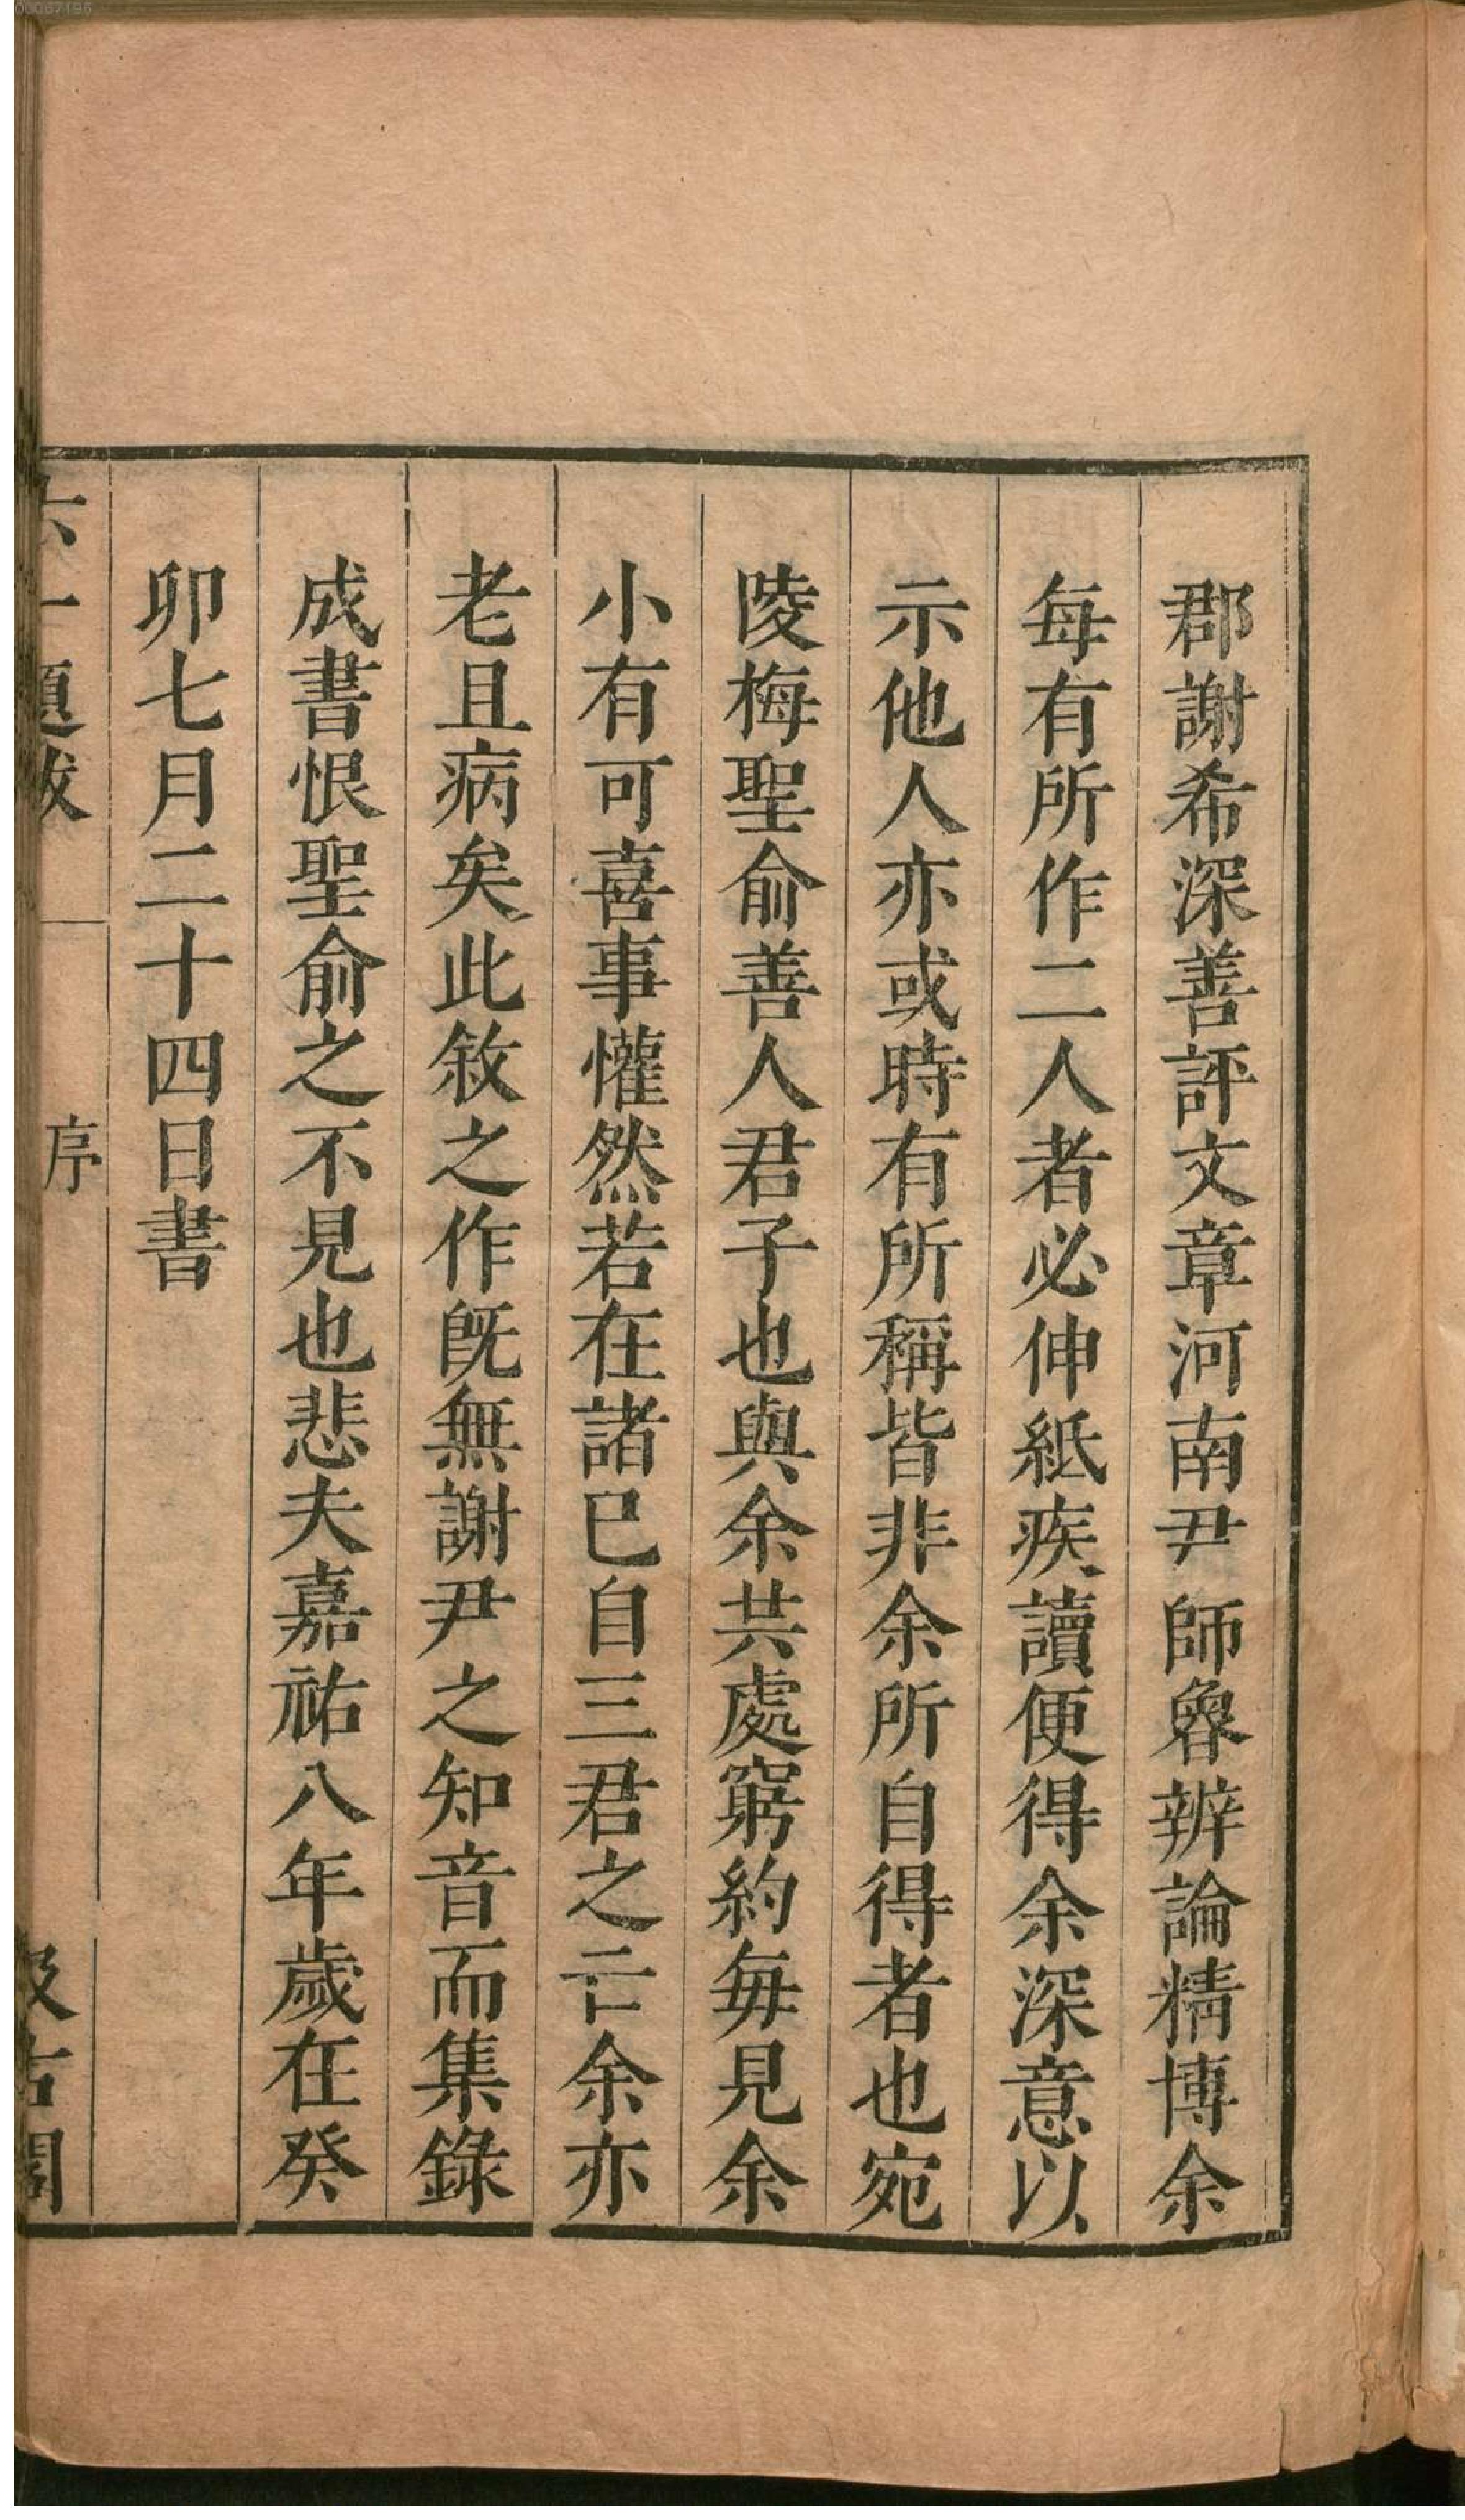 郡謝希深善評文章河南尹師魯辨論精博余
每有所作二人者必伸紙疾讀便得余深意以
示他人亦或時有所稱皆非余所自得者也宛
陵梅聖俞善人君子也與余共處窮約每見余
小有可喜事懽然若在諸巳自三君之亡余亦
老且病矣此敘之作旣無謝尹之知音而集錄
成書恨聖俞之不見也悲夫嘉祐八年歲在癸
卯七月二十四日書
六一題跋
序
汲古閣
00067496